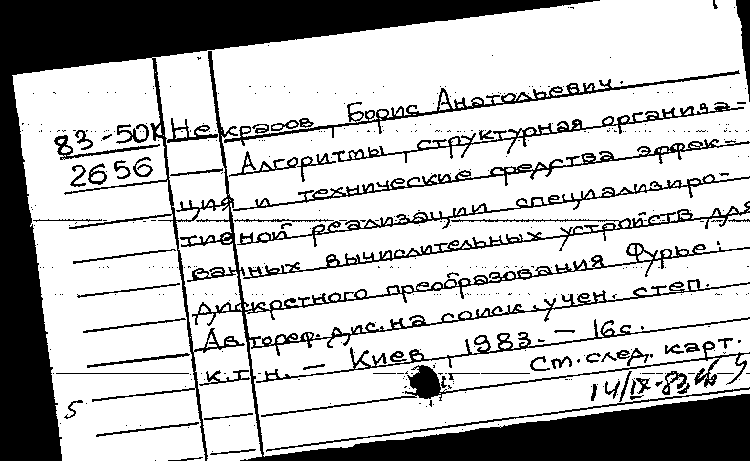 83-50К Некрасов, Борис Анатольевич.
2656 — Алгоритмы, структурная организа-
ция и технические средства эффек-
тивной реализации специализиро-
ванных вычислительных устройств для
дискретного преобразования Фурье:
Автореф. дис. на соиск. учен. степ.
к.т.н. — Киев, 1983. — 16с.
См. след. карт.
5 14/IX-83